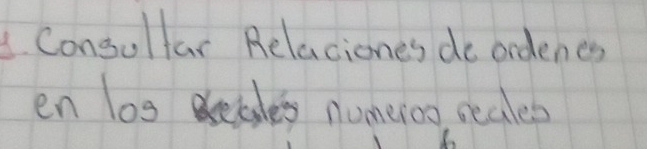 Consultar Relaciones de ordenes
en los numeros reales